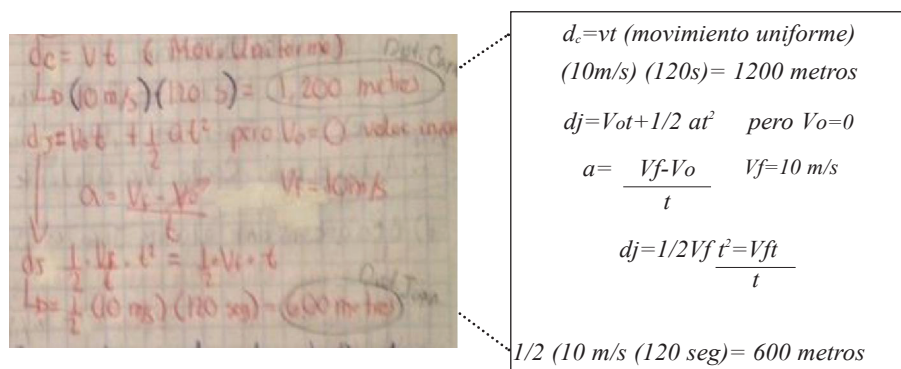 dc = Vt (Mov. Uniforme)
(10 m/s)(120 s) = 1,200 metros
Dist.
dj = Vot + 1/2 at² pero Vo = 0 veloc
a = Vf - Vo / t Vf = 10 m/s
dj 1/2 · Vf/t · t² = 1/2 · Vf · t
Dist. Juan
= 1/2 (10 m/s)(120 seg) = 600 metros
d_c=vt (movimiento uniforme)
(10m/s) (120s)= 1200 metros
dj=Vot+1/2 at² pero Vo=0
a= Vf-Vo / t Vf=10 m/s
dj=1/2Vf t²=Vft / t
1/2 (10 m/s (120 seg)= 600 metros